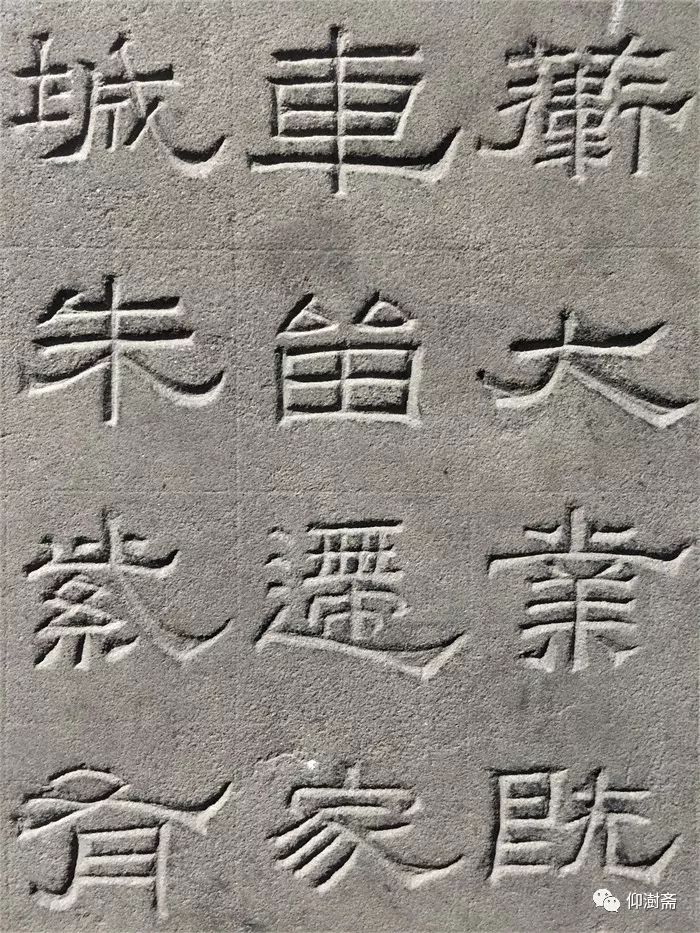 衛大業既
車留遷家
城朱紫有
仰澍斋